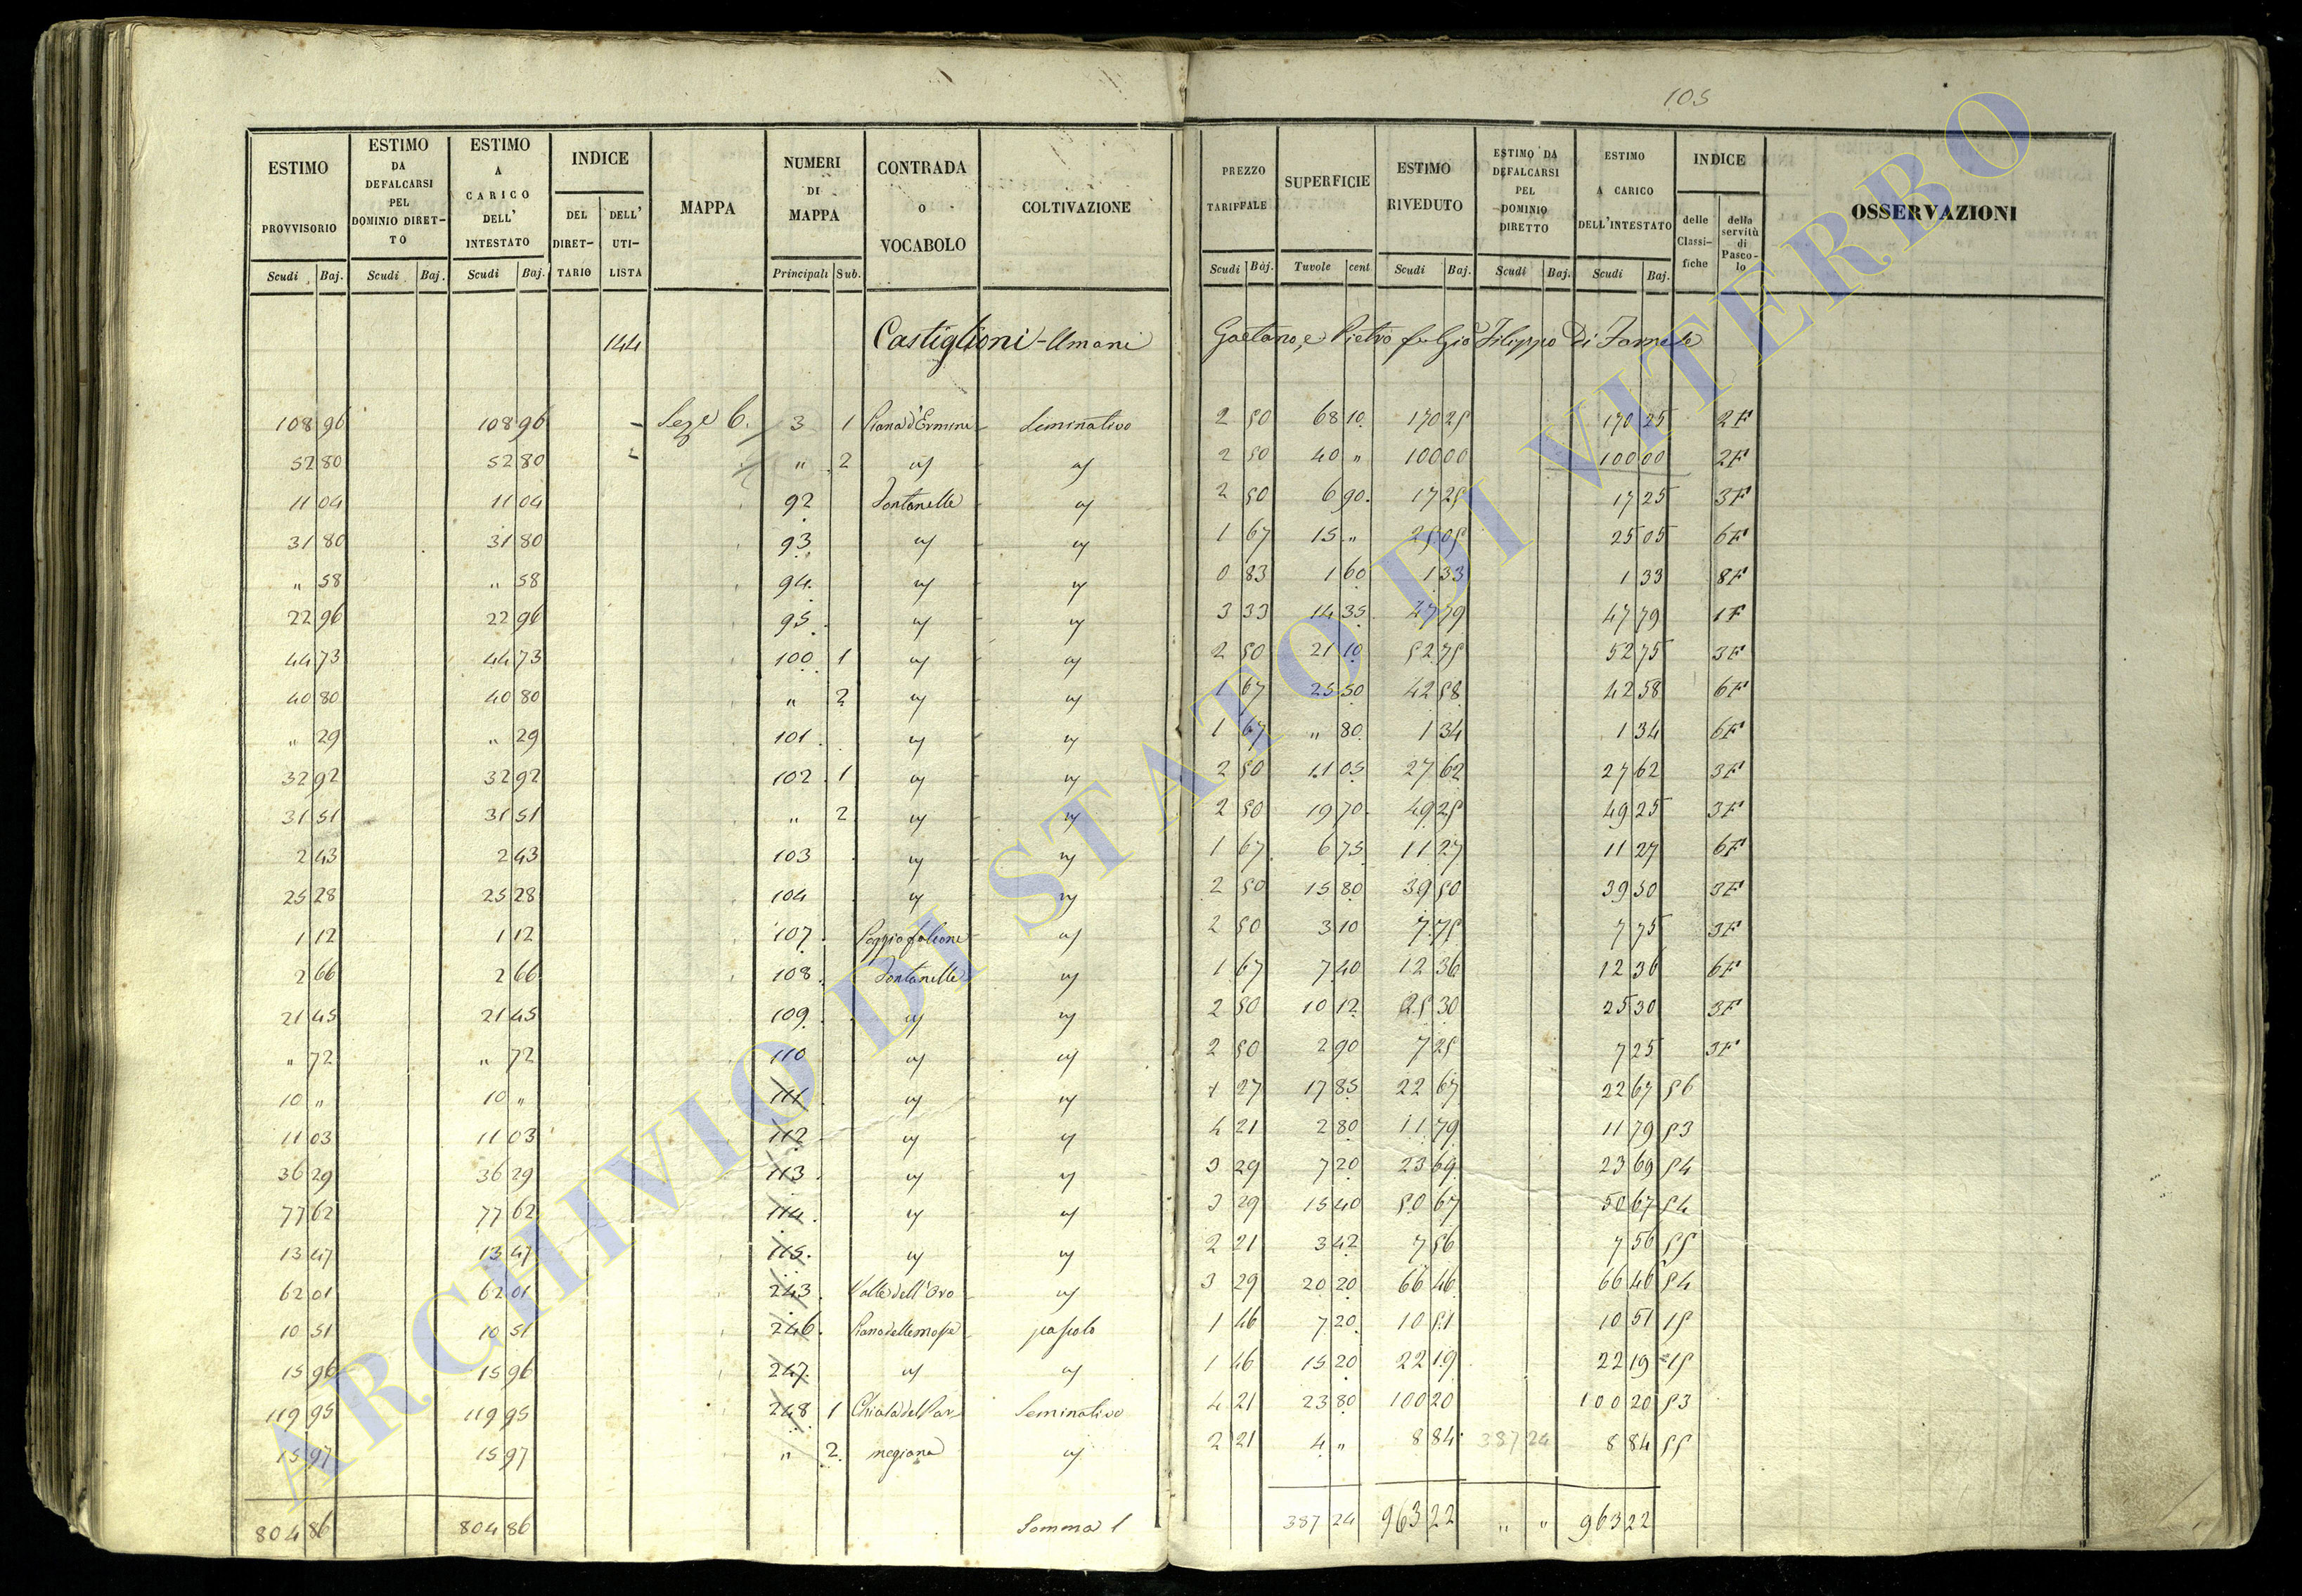 105
ESTIMO PROVVISORIO | ESTIMO DA DEFALCARSI PEL DOMINIO DIRET-TO | ESTIMO A CARICO DELL' INTESTATO | INDICE | MAPPA | NUMERI DI MAPPA | CONTRADA O VOCABOLO | COLTIVAZIONE | PREZZO TARIFFALE | SUPERFICIE | ESTIMO RIVEDUTO | ESTIMO DA DEFALCARSI PEL DOMINIO DIRETTO | ESTIMO A CARICO DELL'INTESTATO | INDICE | OSSERVAZIONI
DEL DIRET-TARIO | DELL' UTI-LISTA | delle Classi-fiche | della servitù di Pasco-lo
Scudi | Baj. | Scudi | Baj. | Scudi | Baj. | Principali | Sub. | Scudi | Baj. | Tavole | cent. | Scudi | Baj. | Scudi | Baj. | Scudi | Baj.
144 Castiglioni-Umani Gaetano, e Pietro Filippo Di Farnese
108 96 | 108 96 | Seze 6. | 3 | 1 | Piana d'Ermini | Seminativo | 2 50 | 68 10 | 170 25 | 170 25 | 2F
52 80 | 52 80 | " | 2 | 2 50 | 40 " | 100 00 | 100 00 | 2F
11 04 | 11 04 | 92 | Fontanelle | 2 50 | 6 90 | 17 25 | 17 25 | 3F
31 80 | 31 80 | 93 | 1 67 | 15 " | 25 05 | 25 05 | 6F
" 58 | " 58 | 94 | 0 83 | 1 60 | 1 33 | 1 33 | 8F
22 96 | 22 96 | 95 | 3 33 | 14 35 | 47 79 | 47 79 | 1F
44 73 | 44 73 | 100 | 1 | 2 50 | 21 10 | 52 75 | 52 75 | 3F
40 80 | 40 80 | " | 2 | 1 67 | 25 50 | 42 58 | 42 58 | 6F
" 29 | " 29 | 101 | 1 67 | " 80 | 1 34 | 1 34 | 6F
32 92 | 32 92 | 102 | 1 | 2 50 | 11 05 | 27 62 | 27 62 | 3F
31 51 | 31 51 | " | 2 | 2 50 | 19 70 | 49 25 | 49 25 | 3F
2 43 | 2 43 | 103 | 1 67 | 6 75 | 11 27 | 11 27 | 6F
25 28 | 25 28 | 104 | 2 50 | 15 80 | 39 50 | 39 50 | 3F
1 12 | 1 12 | 107 | Poggio falcone | 2 50 | 3 10 | 7 75 | 7 75 | 3F
2 66 | 2 66 | 108 | Fontanelle | 1 67 | 7 40 | 12 36 | 12 36 | 6F
21 45 | 21 45 | 109 | 2 50 | 10 12 | 25 30 | 25 30 | 3F
" 72 | " 72 | 110 | 2 50 | 2 90 | 7 25 | 7 25 | 3F
10 " | 10 " | 111 | 1 27 | 17 85 | 22 67 | 22 67 | 56
11 03 | 11 03 | 112 | 4 21 | 2 80 | 11 79 | 11 79 | 53
36 29 | 36 29 | 113 | 3 29 | 7 20 | 23 69 | 23 69 | 54
77 62 | 77 62 | 114 | 3 29 | 15 40 | 50 67 | 50 67 | 54
13 47 | 13 47 | 115 | 2 21 | 3 42 | 7 56 | 7 56 | 55
62 01 | 62 01 | 243 | Valle dell'Oro | 3 29 | 20 20 | 66 46 | 66 46 | 54
10 51 | 10 51 | 246 | Piana delle mosse | pascolo | 1 46 | 7 20 | 10 51 | 10 51 | 15
15 96 | 15 96 | 247 | 1 46 | 15 20 | 22 19 | 22 19 | 15
119 95 | 119 95 | 248 | 1 | Seminativo | 4 21 | 23 80 | 100 20 | 100 20 | 53
15 97 | 15 97 | " | 2 | 2 21 | 4 " | 8 84 | 387 24 | 8 84 | 55
804 86 | 804 86 | Somma | 387 24 | 963 22 | " " | 963 22
ARCHIVIO DI STATO DI VITERBO